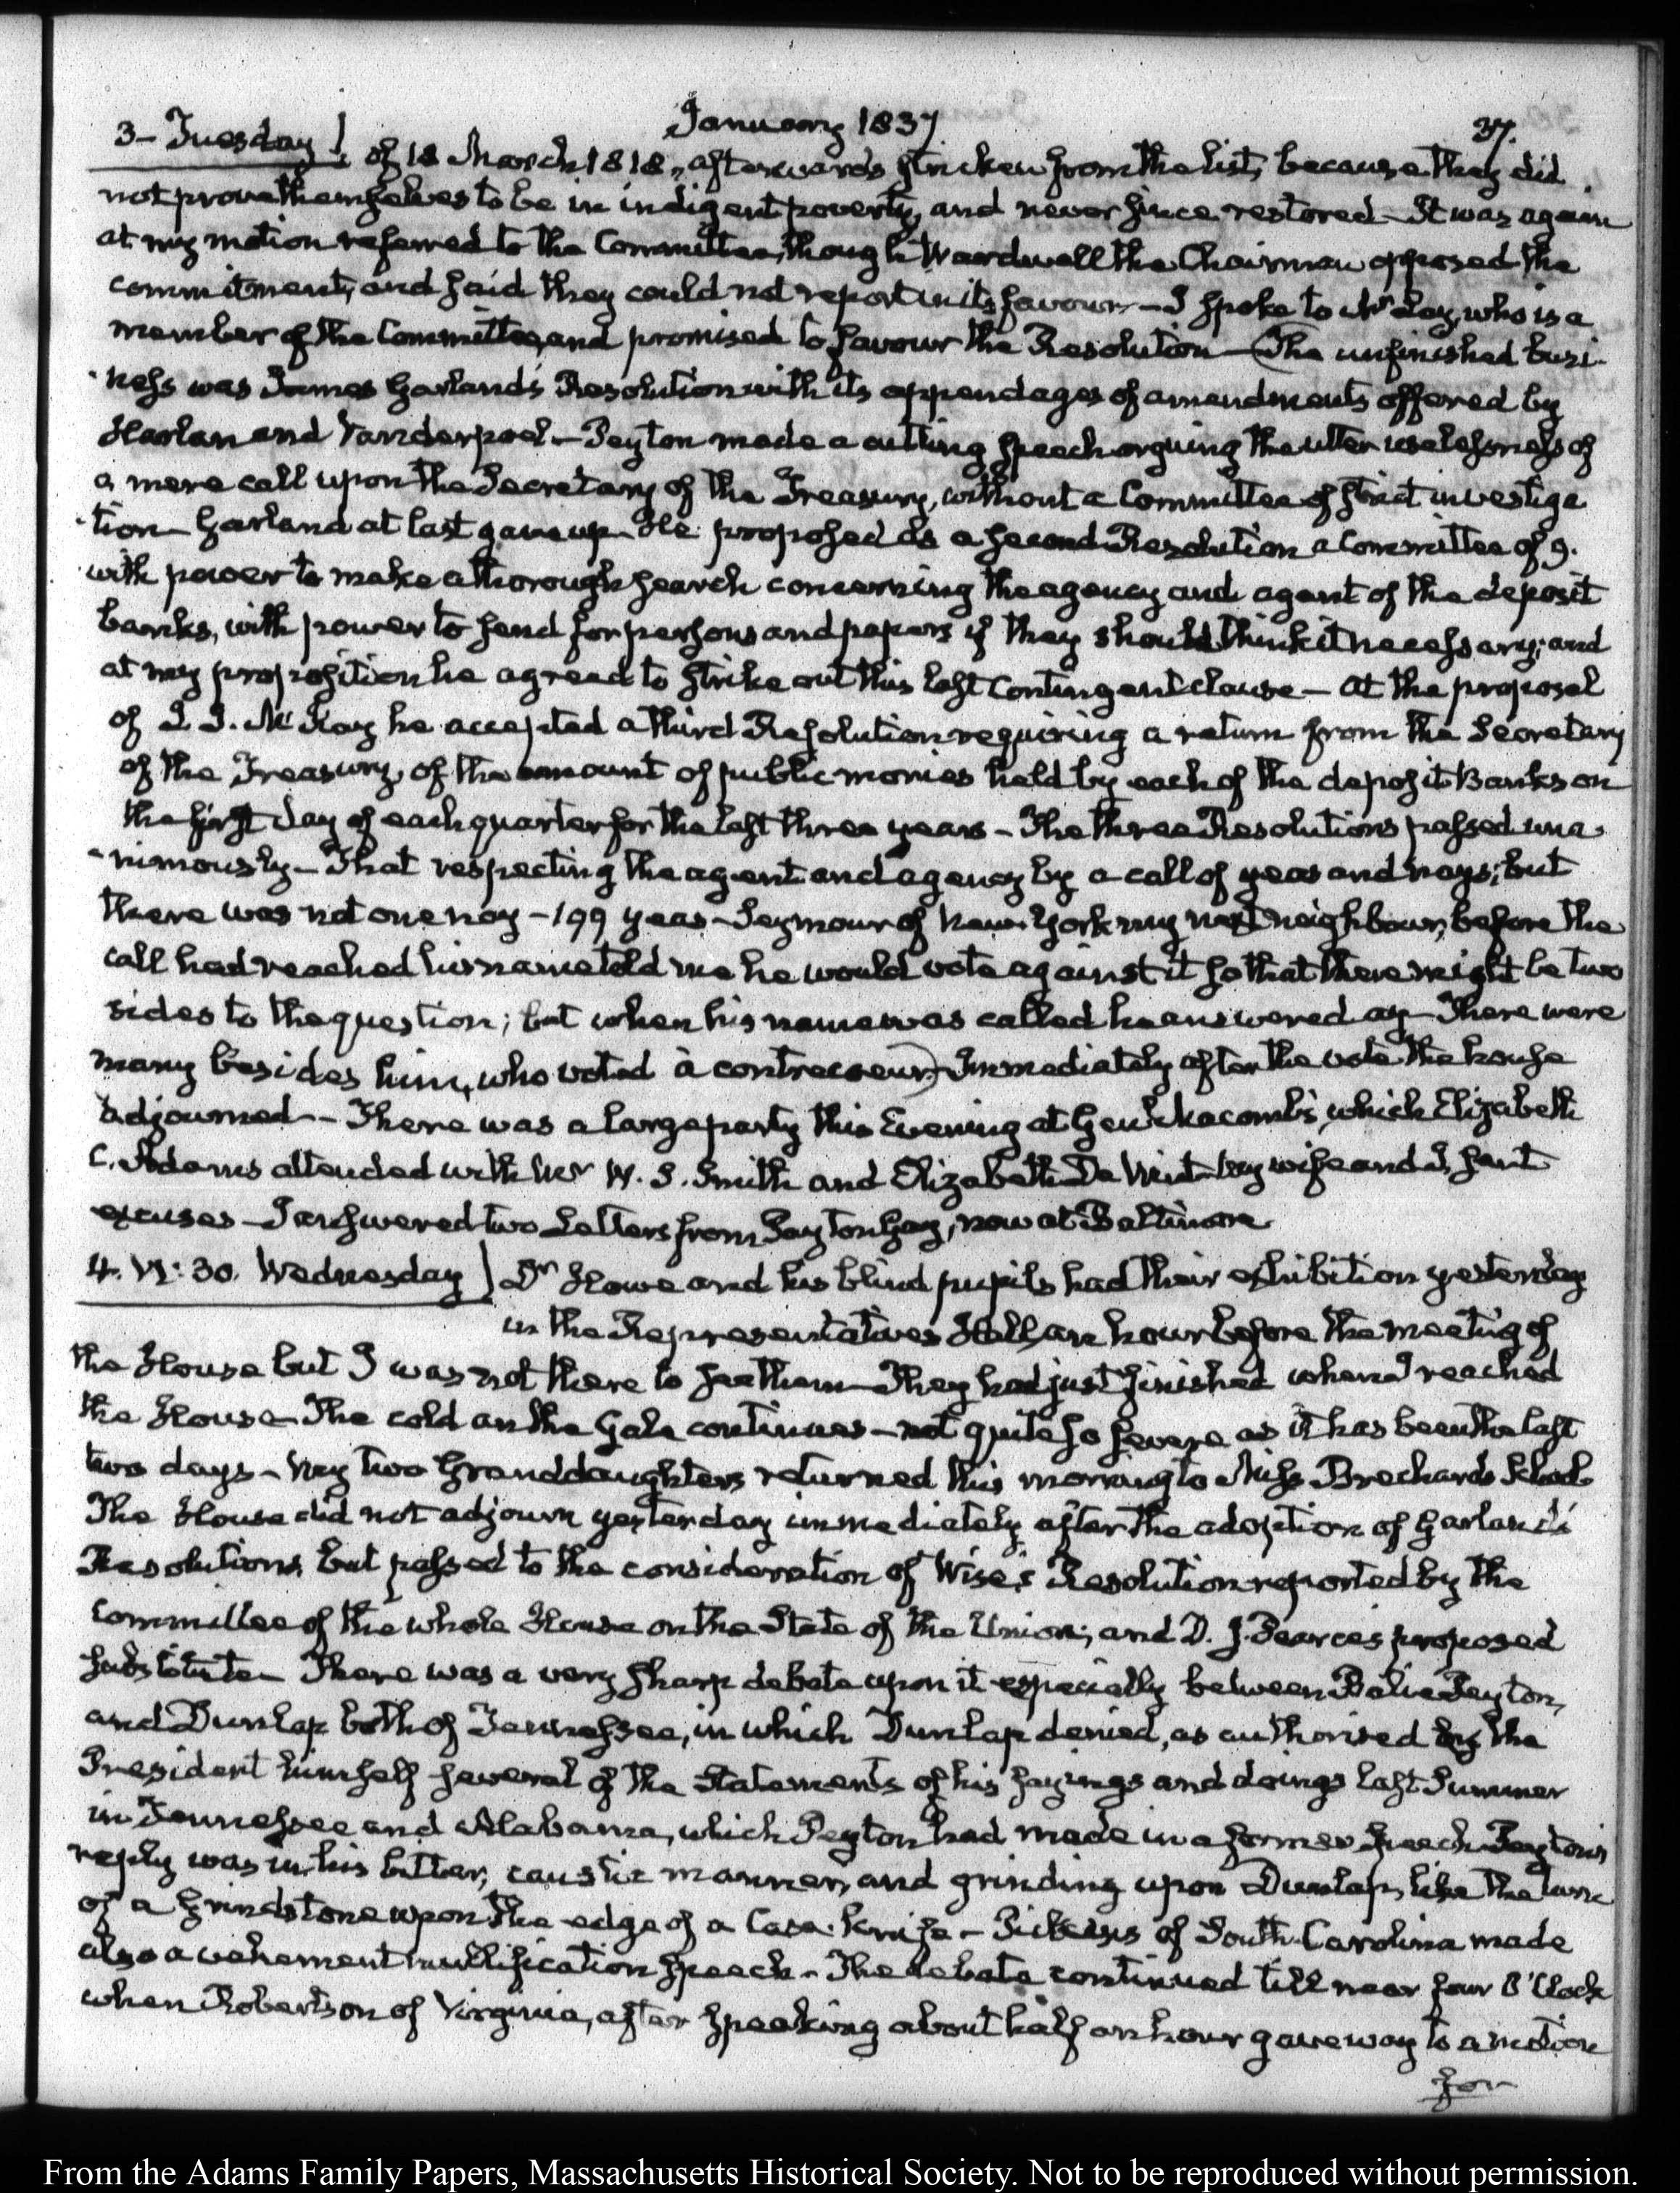 January 1837
37.
3- Tuesday} of 18 March 1818, afterwards stricken from the list, because they did
not prove themselves to be in indigent poverty, and never since restored - It was again
at my motion referred to the Committee, though Wardwell the Chairman opposed the
commitment, and said they could not report in its favour - I spoke to Mr Lay, who is a
member of the Committee, and promised to favour the Resolution - (The unfinished busi-
-ness was James Garland's Resolution with its appendages of amendments offered by
Harlan and Vanderpoel - Peyton made a cutting speech arguing the utter uselessness of
a mere call upon the Secretary of the Treasury, without a Committee of strict investiga
-tion - Garland at last gave up - He proposed as a second Resolution a Committee of 9.
with power to make a thorough search concerning the agency and agent of the deposit
banks, with power to send for persons and papers if they should think it necessary; and
at my proposition he agreed to strike out this last contingent clause - at the proposal
of I I. McKay he accepted a third Resolution requiring a return from the Secretary
of the Treasury, of the amount of public monies held by each of the deposit Banks on
the first day of each quarter for the last three years - The three Resolutions passed una-
-nimously - That respecting the agent and agency by a call of yeas and nays; but
there was not one nay - 199 yeas - Seymour of New-York my next neighbour, before the
call had reached his name told me he would vote against it so that there might be two
sides to the question; but when his name was called he answered ay - There were
many besides him, who voted à contrecoeur) Immediately after the vote the house
adjourned - There was a large party this Evening at Genl Macomb's, which Elizabeth
C. Adams attended with Mr W. S. Smith and Elizabeth De Wint - My wife and I, sent
excuses - I answered two Letters from Payton Gay, now at Baltimore
4. VI: 30. Wednesday} Dr Howe and his blind pupils had their exhibition yesterday
in the Representatives Hall, an hour before the meeting of
the House but I was not there to see them - They had just finished when I reached
the House - The cold and the Gale continues - not quite so severe as it has been the last
two days - My two Granddaughters returned this morning to Miss Brechard's School
The House did not adjourn yesterday immediately after the adoption of Garland's
Resolutions, but passed to the consideration of Wise's Resolution reported by the
Committee of the whole House on the State of the Union; and D. J. Pearce's proposed
substitute - There was a very sharp debate upon it especially between Balie Peyton,
and Dunlap both of Tennessee, in which Dunlap denied, as authorised by the
President himself several of the Statements of his sayings and doings last Summer
in Tennessee and Alabama, which Peyton had made in a former Speech - Peyton's
reply was in his bitter, caustic manner, and grinding upon Dunlap, like the turn
of a Grindstone upon the edge of a Case-knife - Pickens of South-Carolina made
also a vehement nullification Speech - The debate continued till near four O'Clock
when Robertson of Virginia, after speaking about half an hour gave way to a motion
for
From the Adams Family Papers, Massachusetts Historical Society. Not to be reproduced without permission.